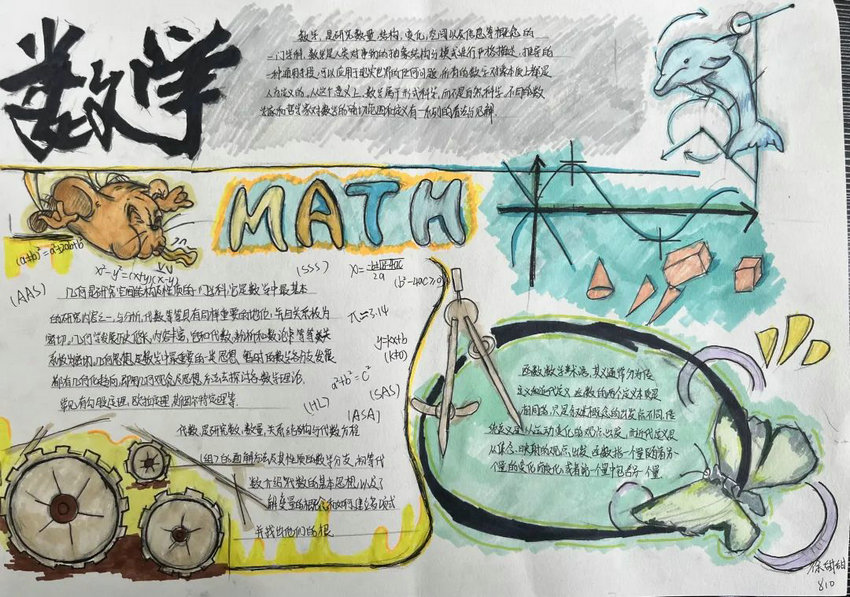 数学
数学,是研究数量、结构、变化、空间以及信息等概念的
一门学科,数学是人类对事物的抽象结构与模式进行严格描述、推导的
一种通用手段,可以应用于现实世界的任何问题,所有的数学对象本质上都是
人为定义的,从这个意义上,数学属于形式科学,而不是自然科学,不同的数
学家和哲学家对数学的确切范围和定义有一系列的看法与见解.
MATH
x²-y²=(x+y)(x-y)
(SSS)
(b²-4ac≥0)
(AAS)
几何是研究空间结构及性质的一门学科,它是数学中最基本
的研究内容之一,与分析、代数等等具有同样重要的地位,并且关系极为
密切,几何学发展历史悠久,内容丰富,它和代数、分析和数论等等
关系极为密切,几何思想是数学中最重要的一类思想,暂时的数学各分支发展
都有几何化趋向,即用几何观点及思想方法去探讨各数学理论,
常见有勾股定理,欧拉定理,斯图尔特定理等.
π≈3.14
y=kx+b
(k≠0)
a²+b²=c²
(HL)
(SAS)
(ASA)
代数,是研究数、数量、关系、结构与代数方程
(组)的通解方法及其性质的数学分支,初等代
数介绍代数的基本思想,
并找出他们的根
函数,数学术语,其定义通常分为传
统定义和近代定义,函数的两个定义本质是
相同的,只是叙述概念的出发点不同,传
统定义是从运动变化的观点出发,而近代定义是
从集合、映射的观点出发,函数指一个量随着另一
个量的变化而变化,或者说一个量中包含另一个量.
810